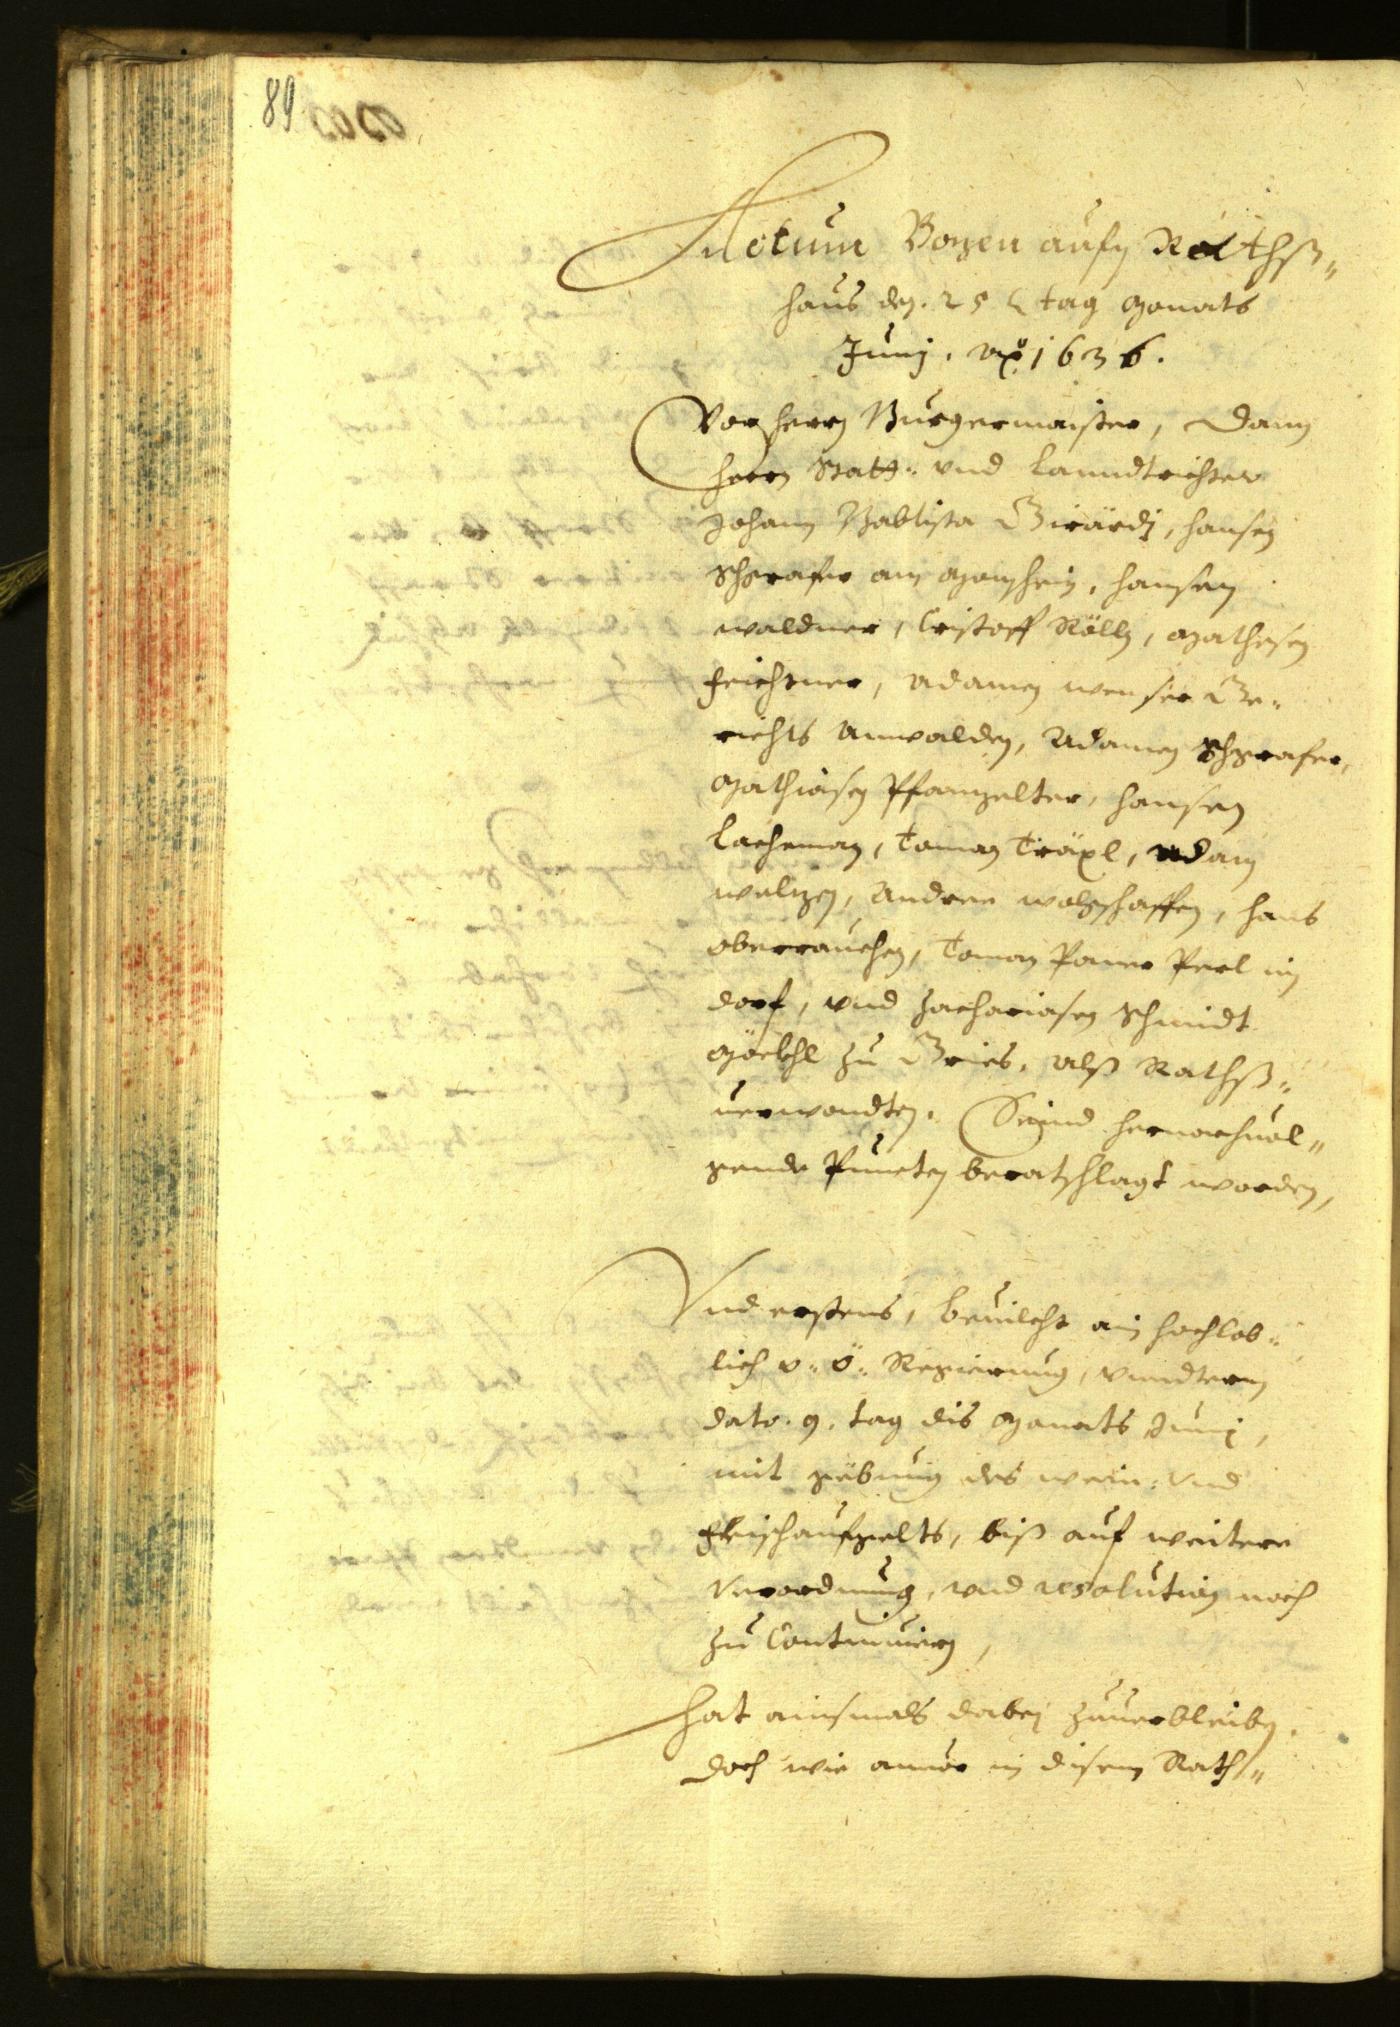 89
Actum Bozen aufm Rathß¬
haus den. 25 tag Monats
Junj. Ao 1636.
Vor herrn Burgermaister, dann
herrn Statt- vnd Lanndtrichter
Johann Babtista Girärdj, hansen
am hansen
waldner, Cristoff Röllg, Mathesen
Feichtner, Adamen wenser Ge¬
richts Anwalden, Adamen
Mathiasen Pfanzelter, hansen
Lacheman, Toman Träxl, Adam
welzen, Andree wolgschaffen, hans
oberrauchen, Toman Pauer Perl im
dorf, vnd Zachariasen Schmidt
zu Gries, alß Rathß¬
uerwandten. Seind hernachuol¬
gende Puncten beratschlagt worden,
Vnd erstens, beuilcht ain hochlob¬
lich o: ö: Regierung, vnndterm
dato. 9. tag dis Monats Junj,
mit gebung des wein- vnd
Fleischaufgelts, biß auf weitere
Verordnung, vnd resolution noch
zu Continuiern,
hat ainsmals dabej zuuerbleiben,
doch wie anuor in disem Rath¬